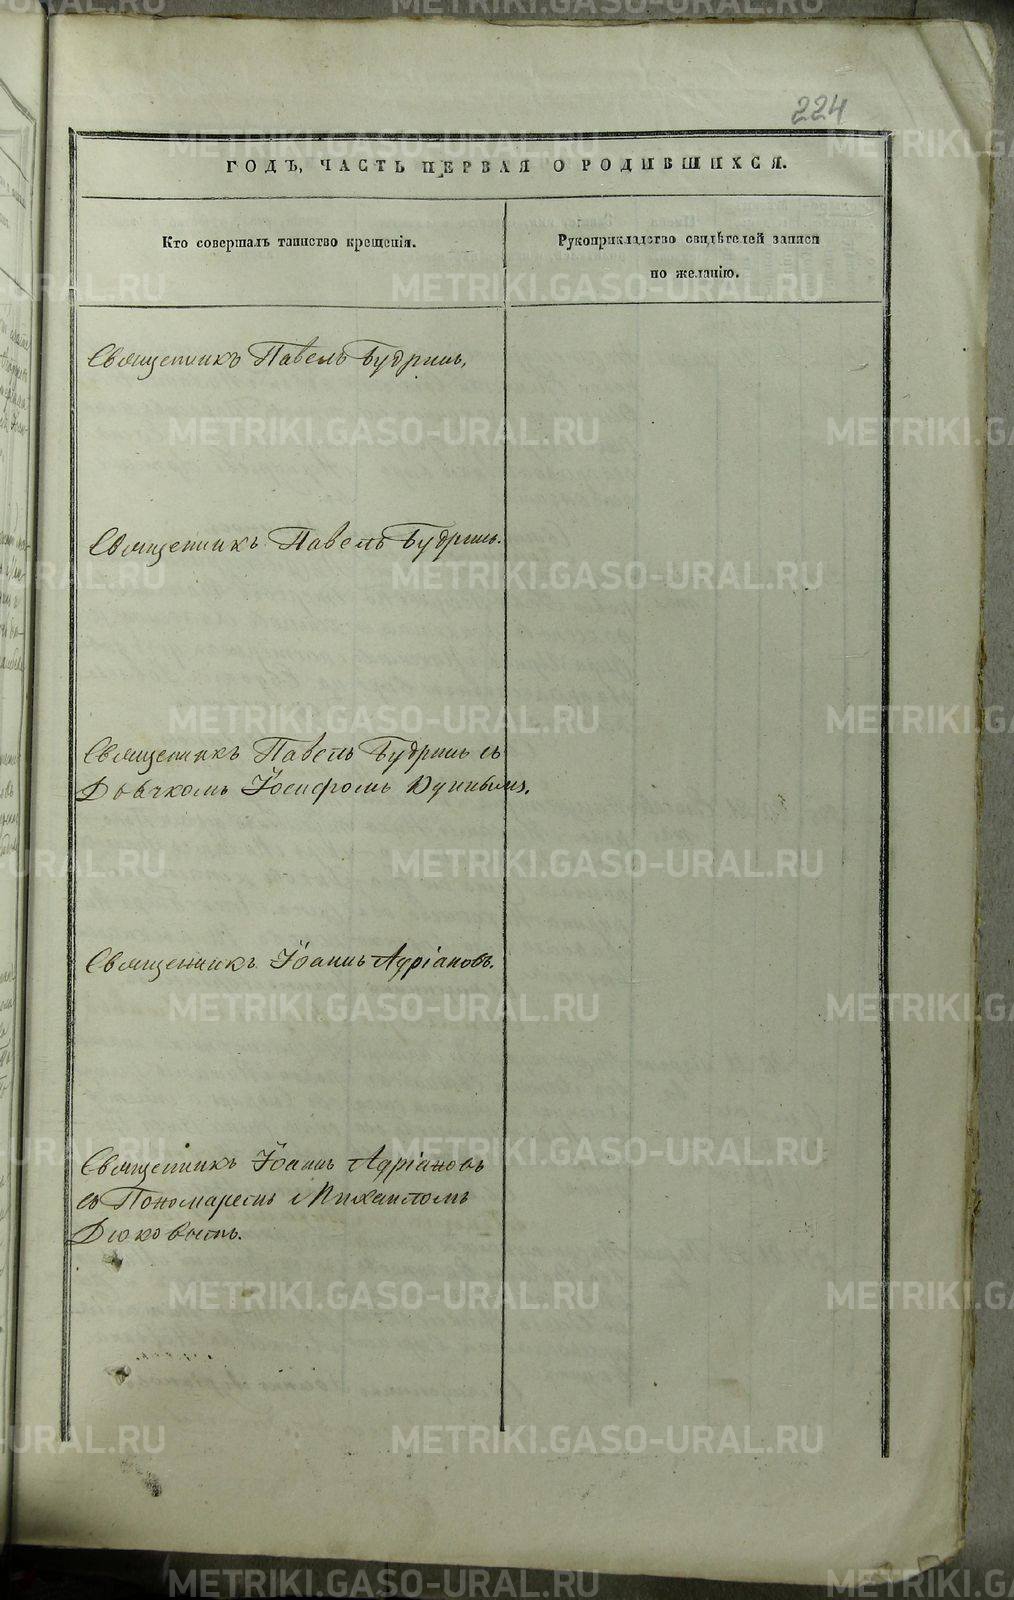 224
ГОДЪ, ЧАСТЬ ПЕРВАЯ О РОДИВШИХСЯ.
Кто совершалъ таинство крещенія.
Рукоприкладство свидѣтелей записи
по желанію.
Священникъ Павелъ Будринъ.
Священникъ Павелъ Будринъ.
Священникъ Павелъ Будринъ съ
Дьячкомъ Іосифомъ
Священникъ Іоаннъ Адріановъ.
Священникъ Іоаннъ Адріановъ
съ Пономаремъ Михаиломъ
Дюковымъ.
METRIKI.GASO-URAL.RU